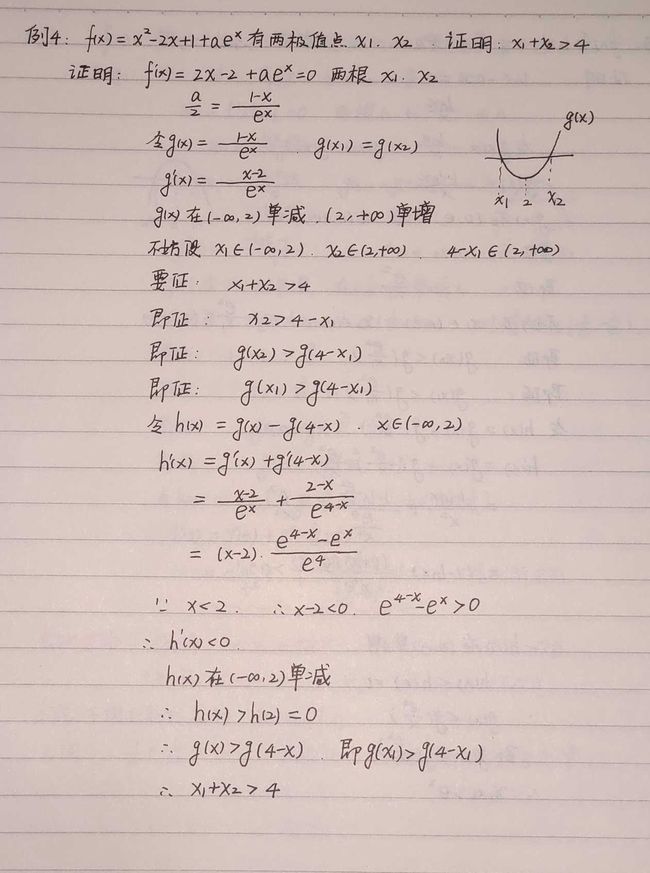 例4: f(x) = x²-2x+1+aeˣ 有两极值点 x₁. x₂. 证明: x₁+x₂>4
证明: f'(x) = 2x-2+aeˣ=0 两根 x₁. x₂
a/2 = (1-x)/eˣ
令g(x) = (1-x)/eˣ . g(x₁) = g(x₂)
g(x)
x₁ 2 x₂
g'(x) = (x-2)/eˣ
g(x) 在(-∞,2) 单减. (2,+∞) 单增
不妨设 x₁∈(-∞,2). x₂∈(2,+∞). 4-x₁∈(2,+∞)
要证: x₁+x₂>4
即证: x₂>4-x₁
即证: g(x₂)>g(4-x₁)
即证: g(x₁)>g(4-x₁)
令 h(x) = g(x)-g(4-x) . x∈(-∞,2)
h'(x) = g'(x)+g'(4-x)
= (x-2)/eˣ + (2-x)/e⁴⁻ˣ
= (x-2)·(e⁴⁻ˣ-eˣ)/e⁴
∵ x<2. ∴ x-2<0. e⁴⁻ˣ-eˣ>0
∴ h'(x)<0.
h(x) 在(-∞,2) 单减
∴ h(x)>h(2)=0
∴ g(x)>g(4-x) . 即g(x₁)>g(4-x₁)
∴ x₁+x₂>4